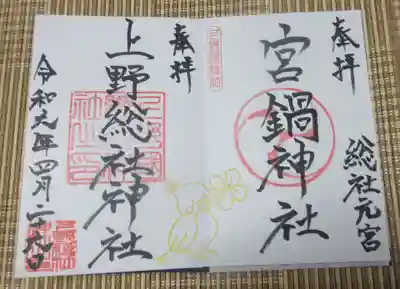 奉拝
総社元宮
宮鍋神社
奉拝
上野総社神社
令和 年四月